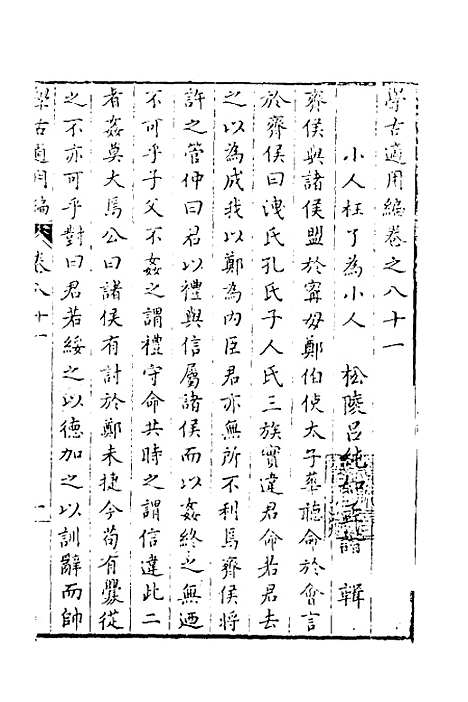 學古適用編卷之八十一
小人枉了為小人　松陵呂純如 輯
齊侯與諸侯盟於甯母鄭伯使太子華聽命於會言
於齊侯曰洩氏孔氏子人氏三族實違君命若君去
之以為成我以鄭為內臣君亦無所不利焉齊侯將
許之管仲曰君以禮與信屬諸侯而以姦終之無迺
不可乎子父不姦之謂禮守命共時之謂信違此二
者姦莫大焉公曰諸侯有討於鄭未捷今苟有釁從
之不亦可乎對曰君若綏之以德加之以訓辭而帥
學古適用編　卷八十一　一